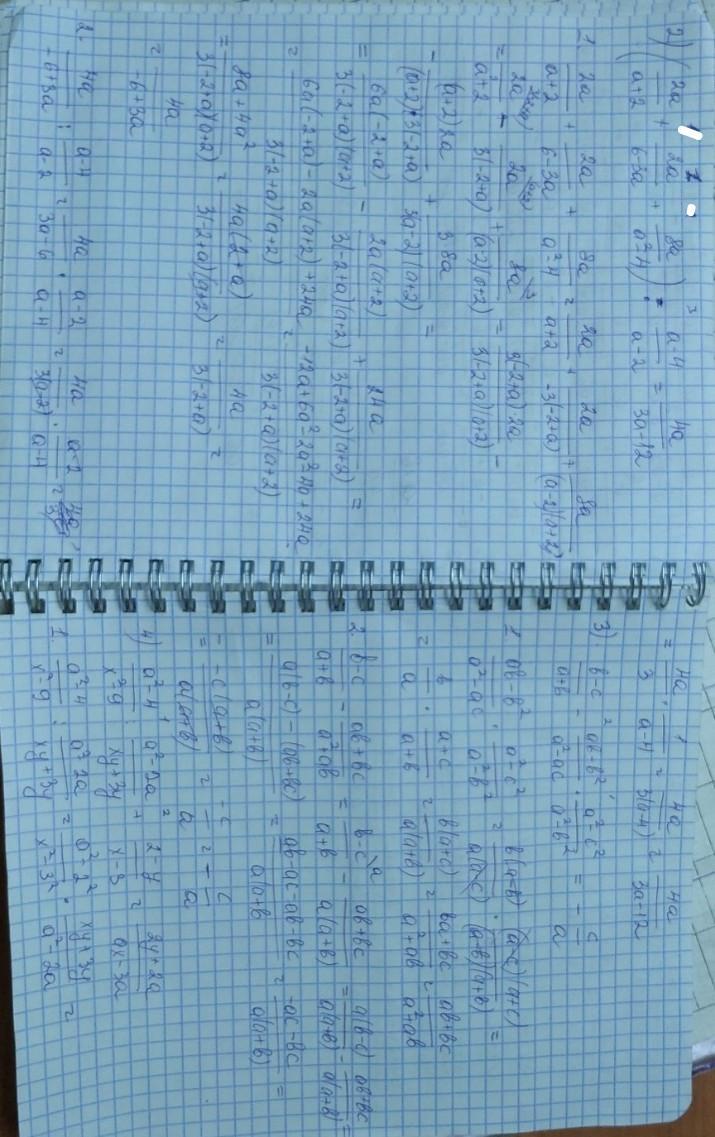 2) (2a/(a+2) + 2a/(6-3a) + 8a/(a²-4)) : (a-4)/(a-2) = 4a/(3a-12)
1. 2a/(a+2) + 2a/(6-3a) + 8a/(a²-4) = 2a/(a+2) + 2a/(-3(-2+a)) + 8a/((a-2)(a+2))
= 2a/(a+2) - 2a/(3(-2+a)) + 8a/((a-2)(a+2)) = 3(-2+a)2a/(3(-2+a)(a+2)) -
- (a+2)2a/((a+2)·3(-2+a)) + 3·8a/(3(a-2)(a+2)) =
= 6a(-2+a)/(3(-2+a)(a+2)) - 2a(a+2)/(3(-2+a)(a+2)) + 24a/(3(-2+a)(a+2)) =
= (6a(-2+a) - 2a(a+2) + 24a)/(3(-2+a)(a+2)) = (-12a+6a² 2a² 4a+24a)/(3(-2+a)(a+2))
= (8a+4a²)/(3(-2+a)(a+2)) = 4a(2+a)/(3(-2+a)(a+2)) = 4a/(3(-2+a)) =
= 4a/(-6+3a)
2. 4a/(-6+3a) : (a-4)/(a-2) = 4a/(3a-6) · (a-2)/(a-4) = 4a/(3(a-2)) · (a-2)/(a-4) =
= 4a/3 · 1/(a-4) = 4a/(3(a-4)) = 4a/(3a-12)
3) (b-c)/(a+b) - (ab-b²)/(a²-ac) · (a²-c²)/(a²-b²) = - c/a
1. (ab-b²)/(a²-ac) · (a²-c²)/(a²-b²) = b(a-b)/(a(a-c)) · (a-c)(a+c)/((a-b)(a+b)) =
= b/a · (a+c)/(a+b) = b(a+c)/(a(a+b)) = (ba+bc)/(a²+ab) = (ab+bc)/(a²+ab)
2. (b-c)/(a+b) - (ab+bc)/(a²+ab) = (b-c)/(a+b) - (ab+bc)/(a(a+b)) = a(b-c)/(a(a+b)) - (ab+bc)/(a(a+b)) =
= (a(b-c)-(ab+bc))/(a(a+b)) = (ab-ac ab+bc)/(a(a+b)) = (-ac-bc)/(a(a+b)) =
= -c(a+b)/(a(a+b)) = -c/a = - c/a
4) (a²-4)/(x²-9) : (a²-2a)/(xy+3y) + (2-y)/(x-3) = (2y+2a)/(ax-3a)
1. (a²-4)/(x²-9) : (a²-2a)/(xy+3y) = (a²-2²)/(x²-3²) · (xy+3y)/(a²-2a) =